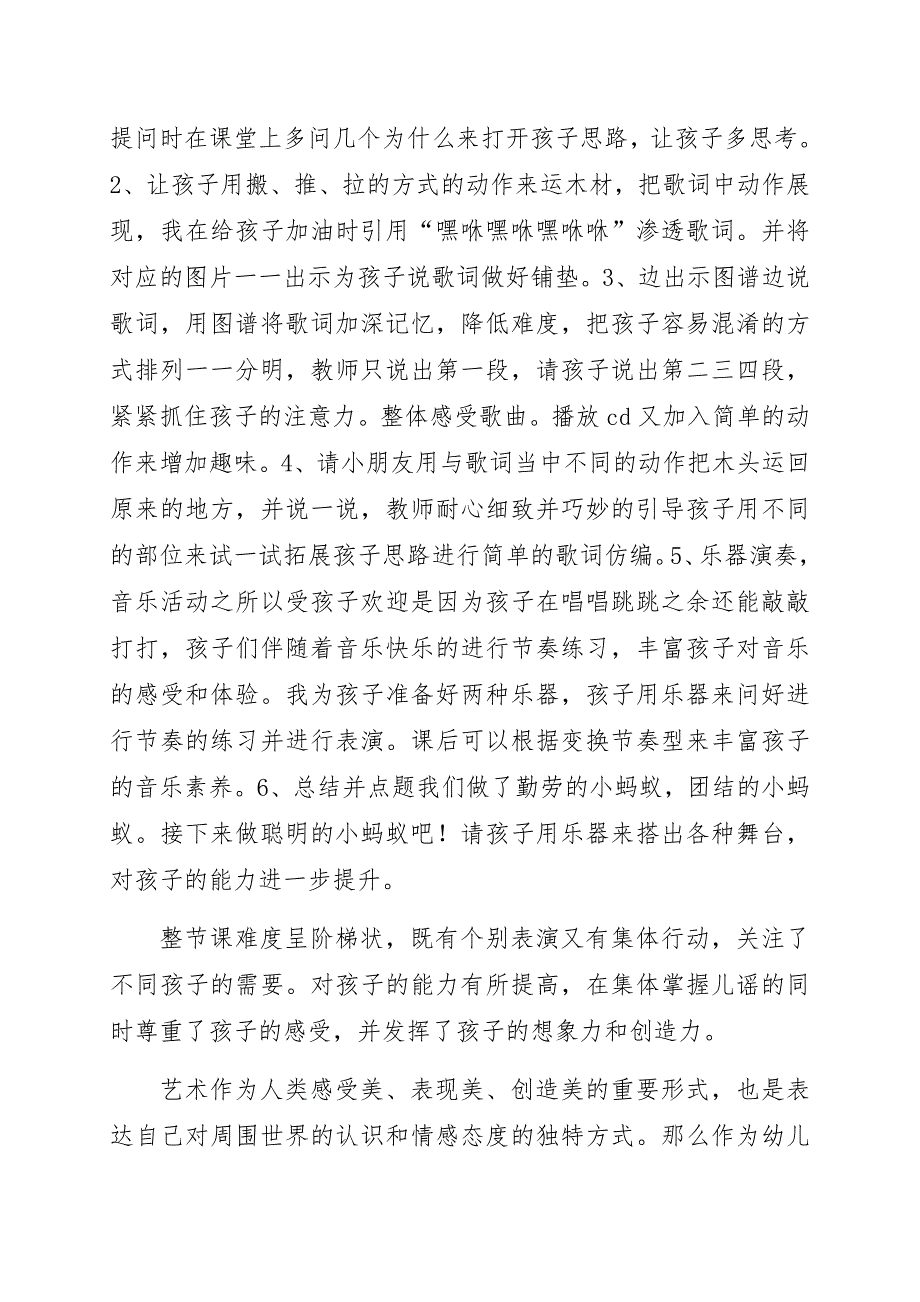 提问时在课堂上多问几个为什么来打开孩子思路，让孩子多思考。
2、让孩子用搬、推、拉的方式的动作来运木材，把歌词中动作展
现，我在给孩子加油时引用“嘿咻嘿咻嘿咻咻”渗透歌词。并将
对应的图片一一出示为孩子说歌词做好铺垫。3、边出示图谱边说
歌词，用图谱将歌词加深记忆，降低难度，把孩子容易混淆的方
式排列一一分明，教师只说出第一段，请孩子说出第二三四段，
紧紧抓住孩子的注意力。整体感受歌曲。播放cd又加入简单的动
作来增加趣味。4、请小朋友用与歌词当中不同的动作把木头运回
原来的地方，并说一说，教师耐心细致并巧妙的引导孩子用不同
的部位来试一试拓展孩子思路进行简单的歌词仿编。5、乐器演奏，
音乐活动之所以受孩子欢迎是因为孩子在唱唱跳跳之余还能敲敲
打打，孩子们伴随着音乐快乐的进行节奏练习，丰富孩子对音乐
的感受和体验。我为孩子准备好两种乐器，孩子用乐器来问好进
行节奏的练习并进行表演。课后可以根据变换节奏型来丰富孩子
的音乐素养。6、总结并点题我们做了勤劳的小蚂蚁，团结的小蚂
蚁。接下来做聪明的小蚂蚁吧！请孩子用乐器来搭出各种舞台，
对孩子的能力进一步提升。
整节课难度呈阶梯状，既有个别表演又有集体行动，关注了
不同孩子的需要。对孩子的能力有所提高，在集体掌握儿谣的同
时尊重了孩子的感受，并发挥了孩子的想象力和创造力。
艺术作为人类感受美、表现美、创造美的重要形式，也是表
达自己对周围世界的认识和情感态度的独特方式。那么作为幼儿